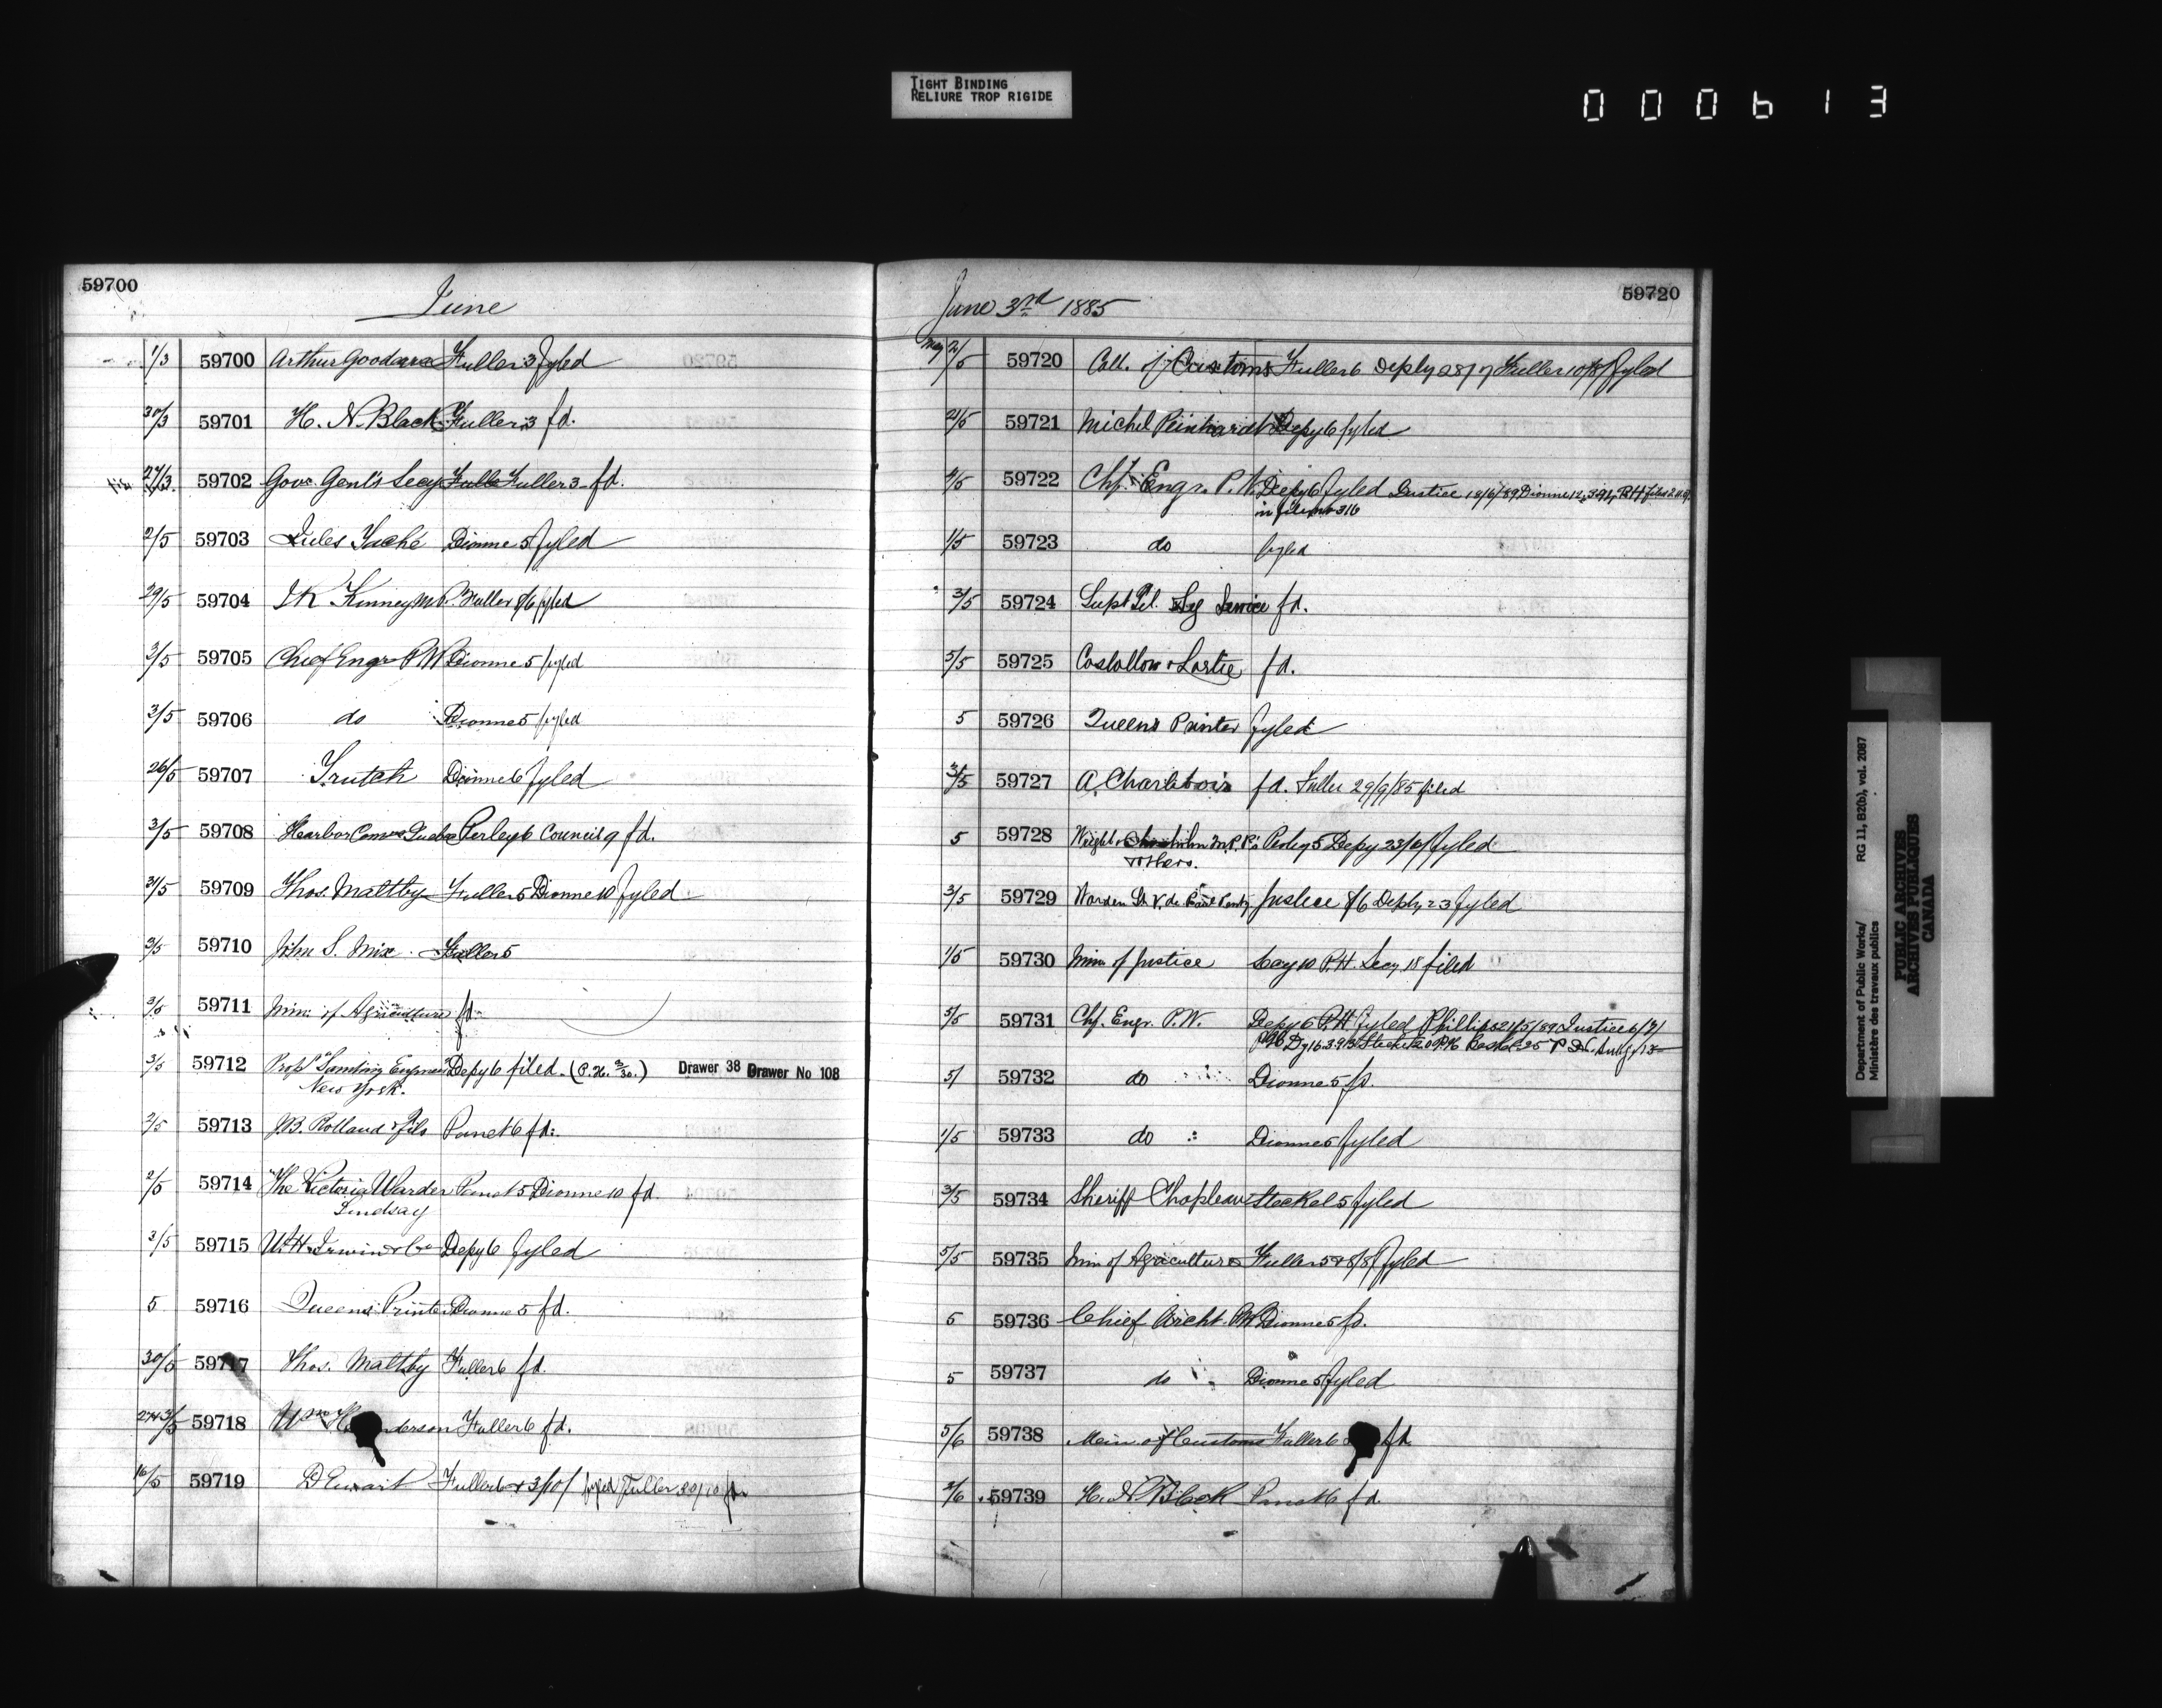 TIGHT BINDING
RELIURE TROP RIGIDE
000613
59700
June
1/3 59700 Arthur Goodeve Fuller 3 fyled
30/3 59701 H. N. Black Fuller 3 fd.
27/3 59702 Gov. Genl's Secy Fuller 3 - fd.
2/5 59703 Jules Taché Dionne 5 fyled
29/5 59704 Kinney M.P. Fuller 8/6 fyled
3/5 59705 Chief Engr P W Dionne 5 fyled
3/5 59706 do Dionne 5 fyled
26/5 59707 Trutch Dionne 6 fyled
3/5 59708 Harbor Comrs Quebec Perley 6 Council 9 fd.
31/5 59709 Thos. Maltby Fuller 5 Dionne 10 fyled
3/5 59710 John S. Mix Fuller 5
3/5 59711 Min. of Agriculture fd.
3/5 59712 Depy 6 filed. (P.H. 9/30.) Drawer 38 Drawer No 108
New York.
2/5 59713 J.B. Rolland & fils Panet 6 fd.
2/5 59714 The Victoria Warder Panet 5 Dionne 10 fd
Lindsay
3/5 59715 W.H. Irwin & Co Depy 6 fyled
5 59716 Queens Printer Dionne 5 fd.
30/5 59717 Thos. Maltby Fuller 6 fd.
59718 Wm Henderson Fuller 6 fd.
16/5 59719 D Ewart Fuller 6 & 3/10/ fyled Fuller 30/10 fd.
June 3rd 1885
59720
May 2/5 59720 Coll. of Customs Fuller 6 Deply 28/7 Fuller 10/8/ fyled
21/5 59721 Michel Reinhardt Depy 6 fyled
4/5 59722 Chf. Engr. P. W. Depy 6 fyled Justice 18/6/89 Dionne 12
in file no 316
1/5 59723 do fyled
3/5 59724 Supt Tel. Sig Service fd.
5/5 59725 Costollow & Lartie fd.
5 59726 Queens Printer fyled
3/5 59727 A. Charlebois fd. Fuller 29/9/85 filed
5 59728 Wright M.P. Perley 5 Depy 23/6/ fyled
others.
3/5 59729 Warden St V. de Paul Penty. Justice 8/6 Depty 23 fyled
1/5 59730 Min of Justice Secy 10 P.H. Secy 18 filed
5/5 59731 Chf. Engr. P.W. Depy 6 P.H fyled Phillips 21/5/89 Justice 6/7/
5/ 59732 do Dionne 5 fd.
1/5 59733 do Dionne 5 fyled
3/5 59734 Sheriff Chapleau Steckel 5 fyled
5/5 59735 Min of Agriculture Fuller 5 & 8/8/ fyled
5 59736 Chief Archt. PW Dionne 5 fd.
5 59737 do Dionne 5 fyled
5/6 59738 Min of Customs Fuller 6 fd.
2/6 59739 H. N. Black Panet 6 fd.
Department of Public Works/
Ministère des travaux publics
RG 11, B2(b), vol. 2087
PUBLIC ARCHIVES
ARCHIVES PUBLIQUES
CANADA